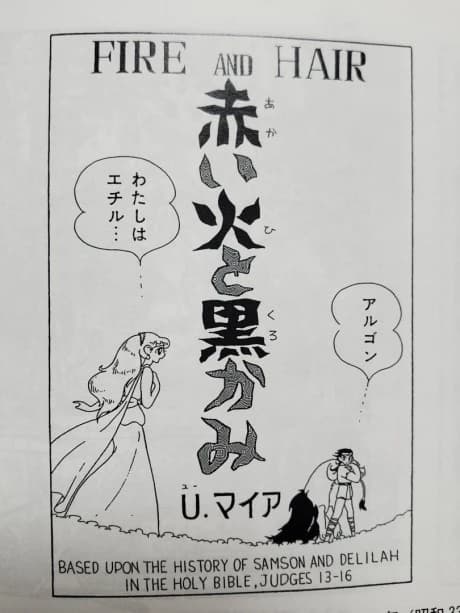 FIRE AND HAIR
赤い火と黒かみ
あか
ひ
くろ
わたしは
エチル…
アルゴン
U.マイア
ユー
BASED UPON THE HISTORY OF SAMSON AND DELILAH
IN THE HOLY BIBLE, JUDGES 13-16